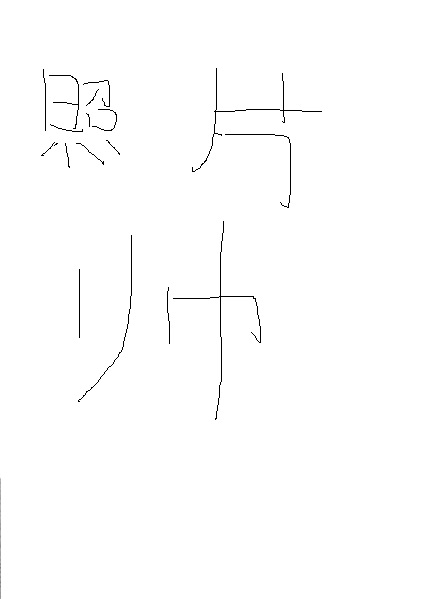 照片
帅